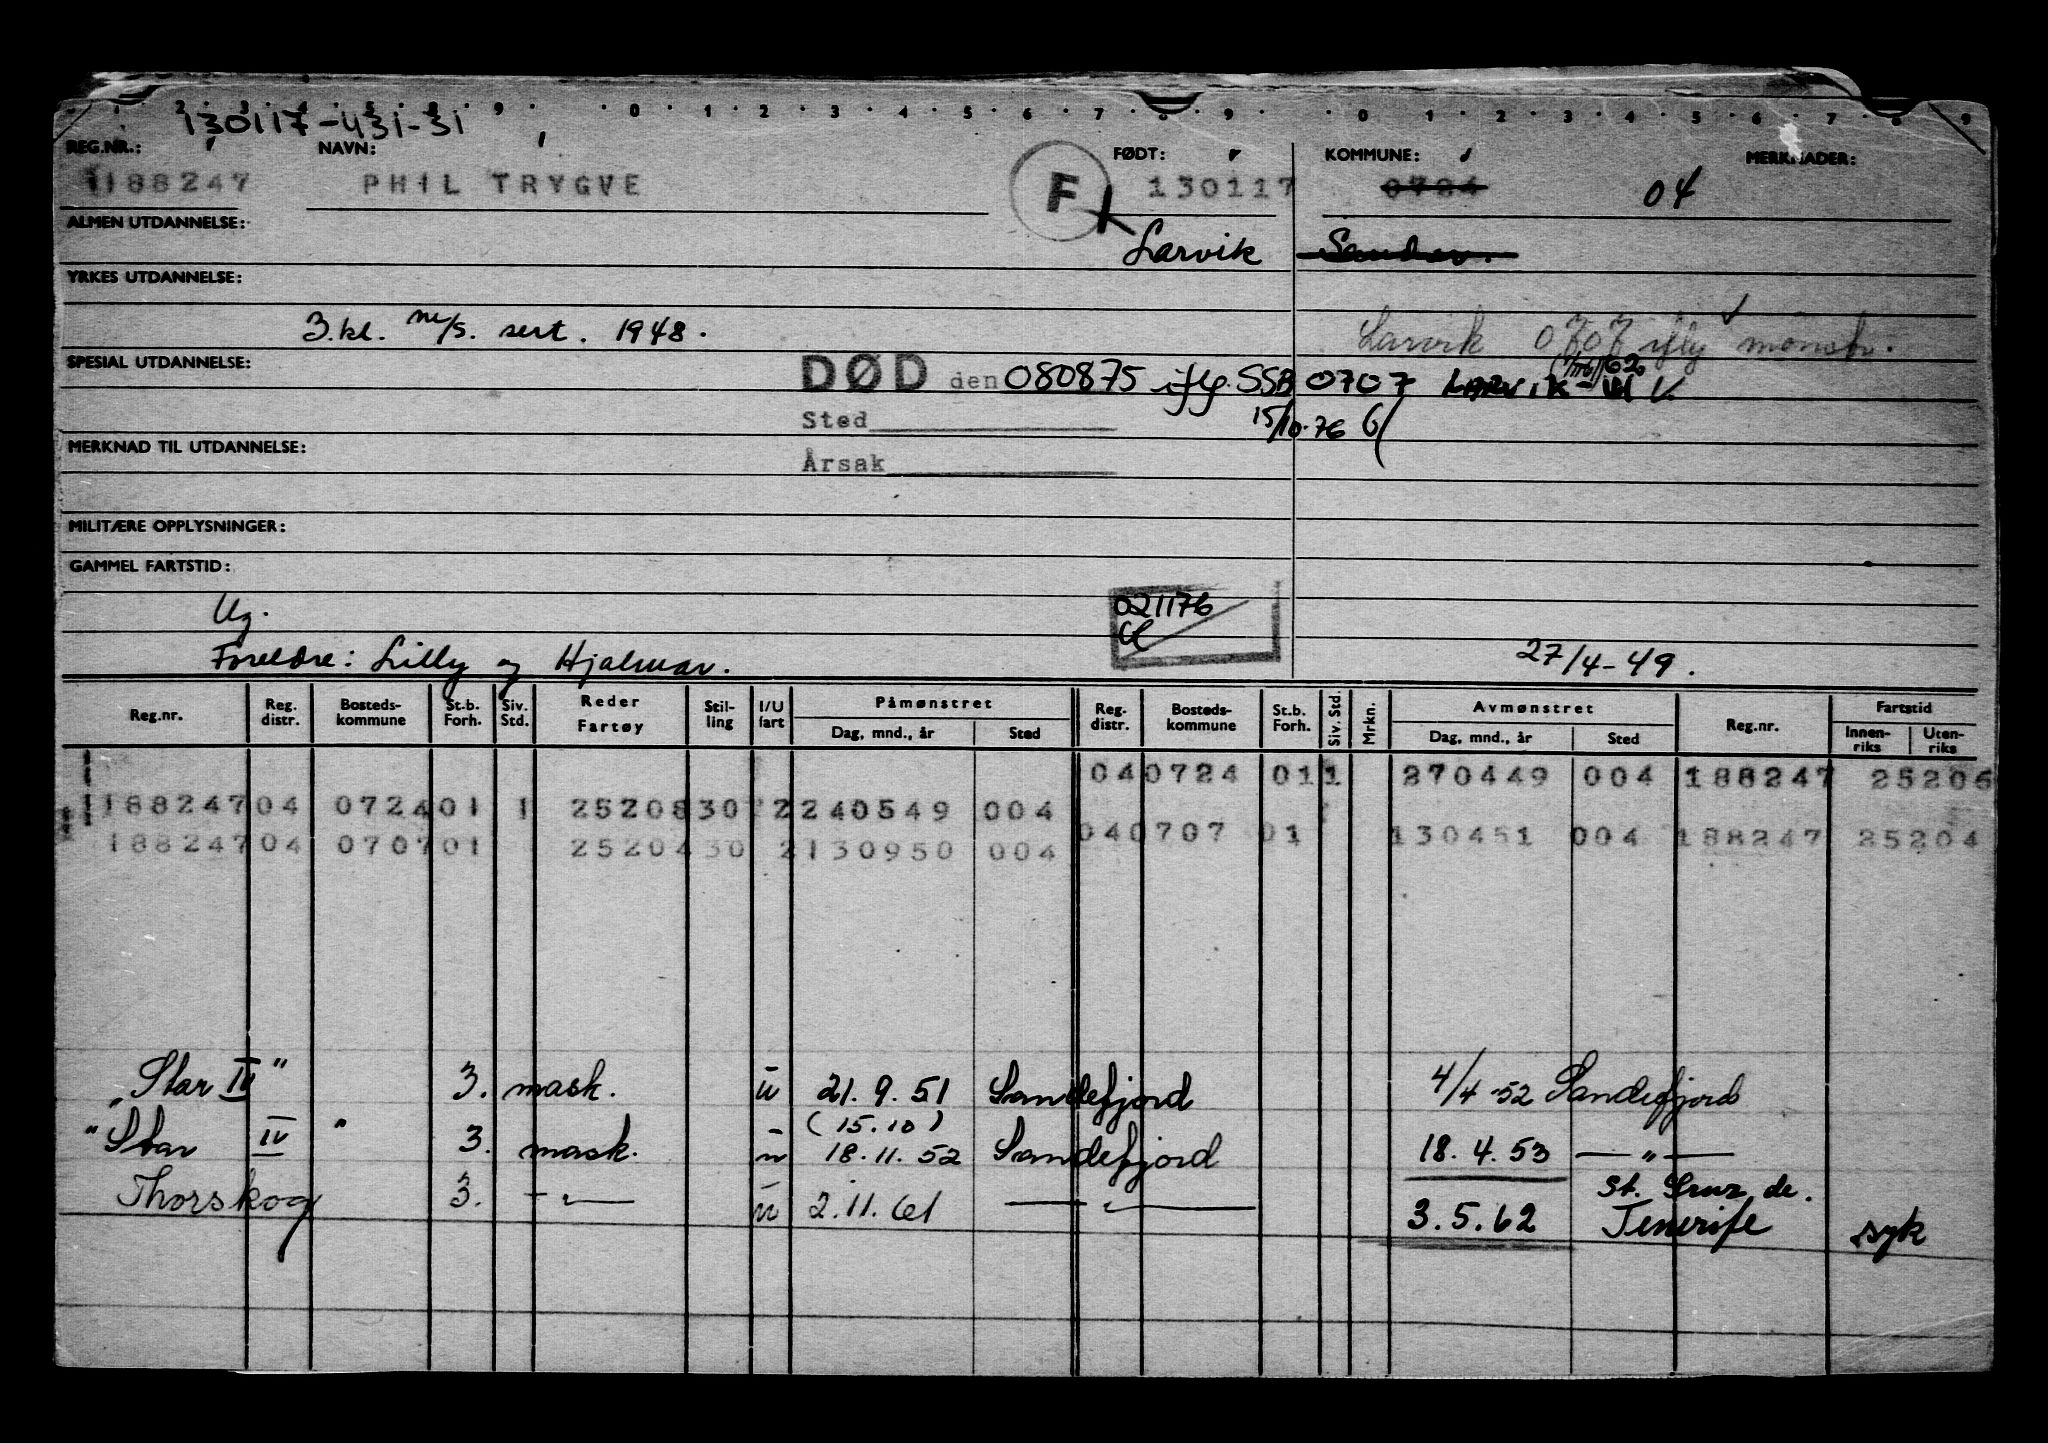 1 · 2 · 3 · 4 · 5 · 8 · 9 · 0 · 1 · 2 · 3 · 4 · 5 · 6 · 7 · 8 · 9 · 0 · 1 · 2 · 3 · 4 · 5 · 6 · 7 · 8 · 9
130117-431-31
REG.NR.: NAVN: FØDT: KOMMUNE: MERKNADER:
188247 PHIL TRYGVE F 130117 0724 04
ALMEN UTDANNELSE:
Larvik Sandar.
YRKES UTDANNELSE:
3.kl. m/s. sert. 1948. Larvik 0707 iflg mønstr.
SPESIAL UTDANNELSE:
DØD den 080875 iflg. SSB 0707 LARVIK
Sted 15/10-76
MERKNAD TIL UTDANNELSE:
Årsak
MILITÆRE OPPLYSNINGER:
GAMMEL FARTSTID:
Ug. 021176
Foreldre: Lilly og Hjalmar. 27/4-49.
Reg.nr. Reg. distr. Bosteds-kommune St.b. Forh. Siv. Std. Reder Fartøy Stil-ling I/U fart Påmønstret Dag, mnd., år Sted Reg. distr. Bosteds-kommune St.b. Forh. Siv. Std. Mrkn. Avmønstret Dag, mnd., år Sted Reg.nr. Fartstid Innen-riks Uten-riks
04 0724 01 1 270449 004 188247 25206
188247 04 0724 01 1 25208 30 2 240549 004
04 0707 01 130451 004 188247 25204
188247 04 0707 01 25204 30 2 130950 004
"Star IV" 3. mask. u 21.9.51 Sandefjord 4/4-52 Sandefjord
(15.10)
"Star IV" 3. mask. u 18.11.52 Sandefjord 18.4.53 — " —
Thorskog 3. — " — u 2.11.61 — " — 3.5.62 St. Cruz de. Tenerife syk